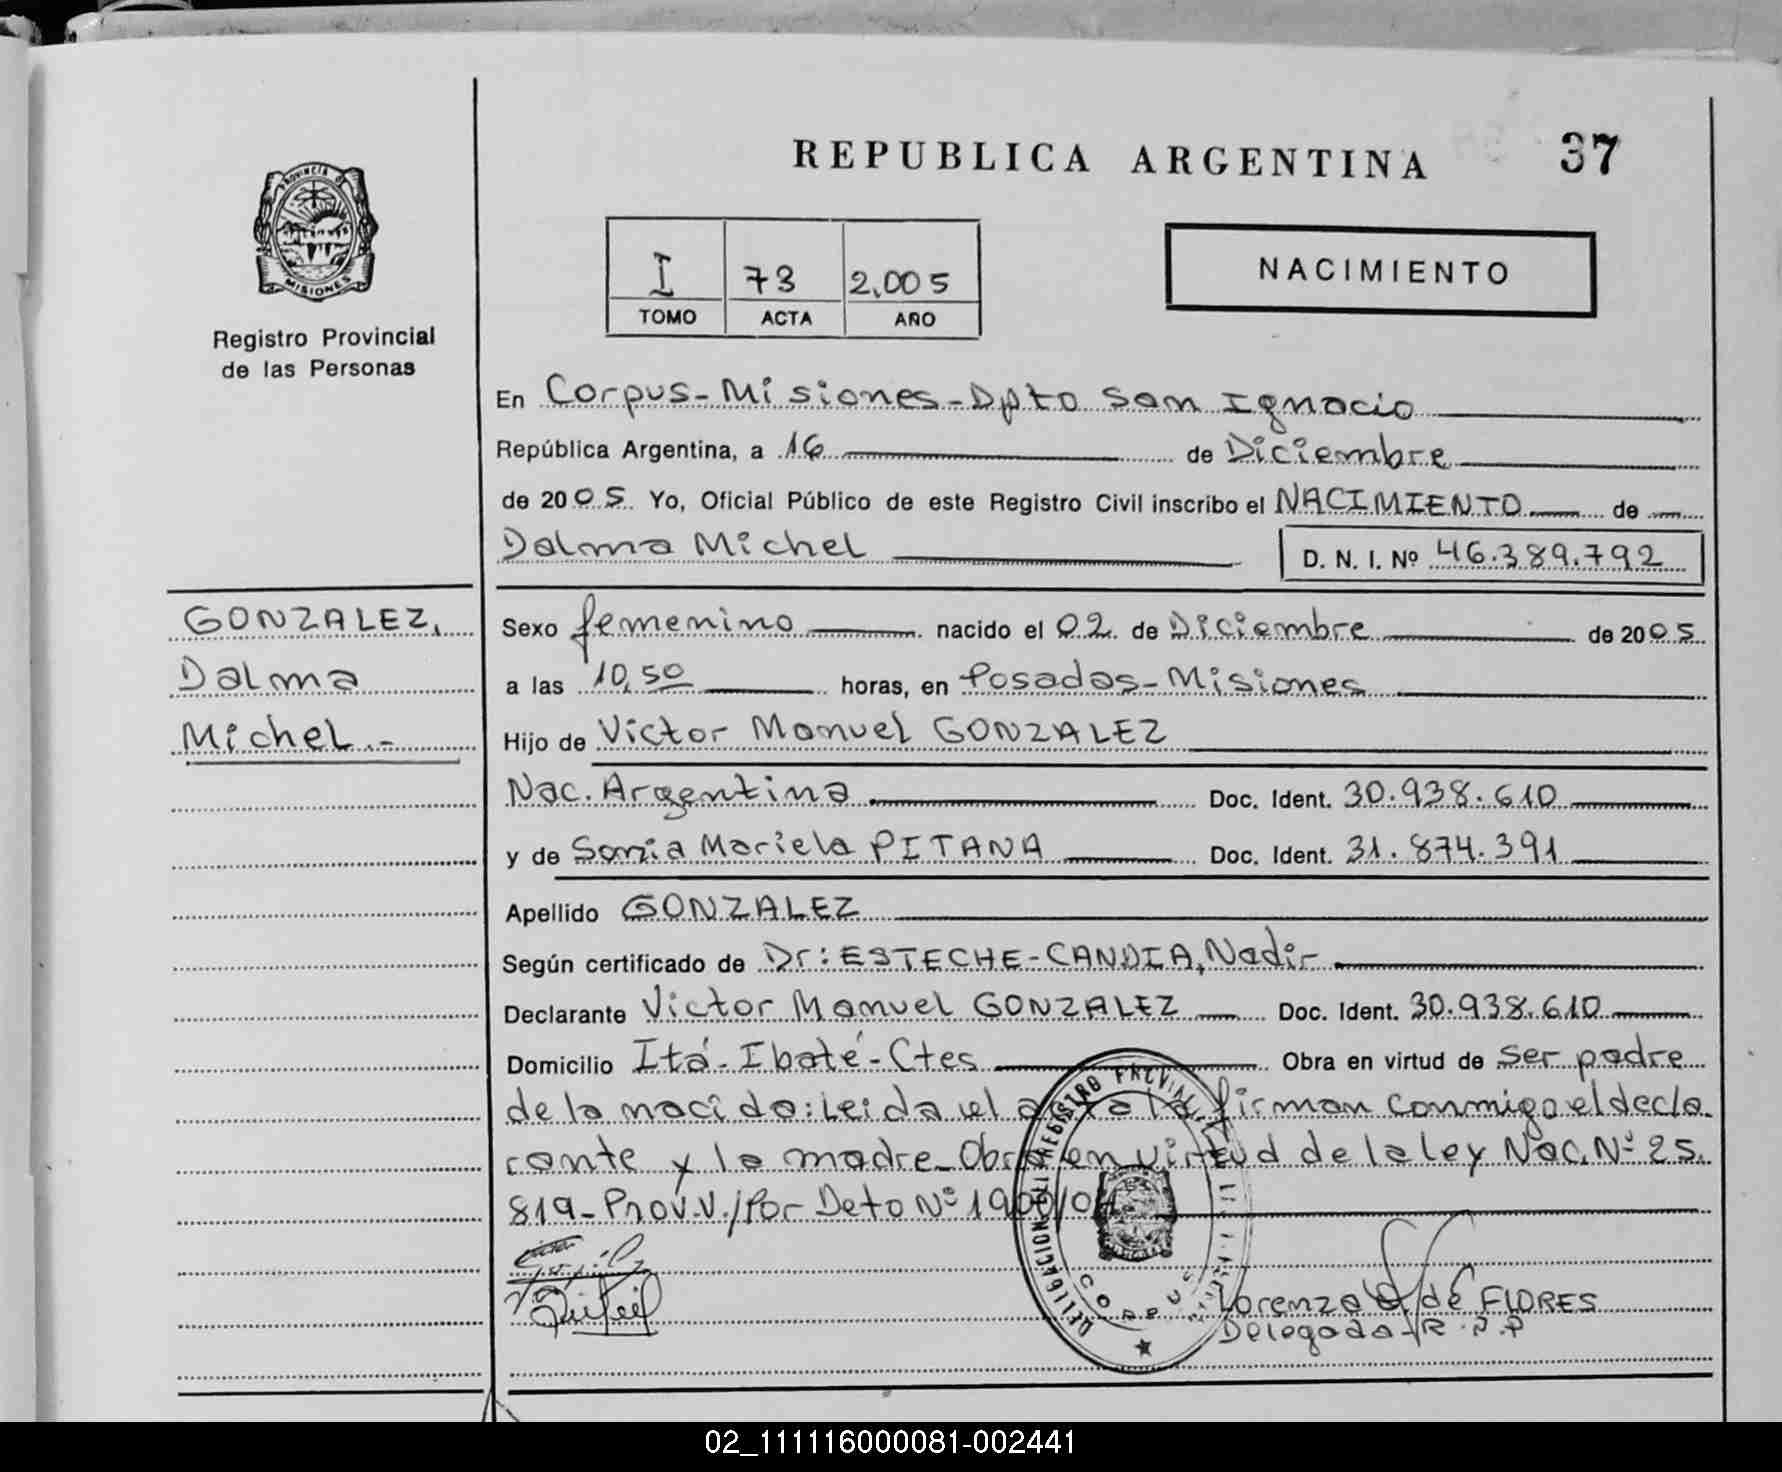 REPUBLICA ARGENTINA
37
PROVINCIA DE
MISIONES
Registro Provincial
de las Personas
I 73 2.005
TOMO ACTA AÑO
NACIMIENTO
En Corpus-Misiones-Dpto San Ignacio
República Argentina, a 16 de Diciembre
de 2005 Yo, Oficial Público de este Registro Civil inscribo el NACIMIENTO de
Dalma Michel
D. N. I. Nº 46.389.792
GONZALEZ,
Dalma
Michel.-
Sexo femenino nacido el 02 de Diciembre de 2005
a las 10,50 horas, en Posadas-Misiones
Hijo de Victor Manuel GONZALEZ
Nac. Argentina Doc. Ident. 30.938.610
y de Sonia Mariela PITANA Doc. Ident. 31.874.391
Apellido GONZALEZ
Según certificado de Dr: ESTECHE-CANDIA, Nadir
Declarante Victor Manuel GONZALEZ Doc. Ident. 30.938.610
Domicilio Itá-Ibaté-Ctes Obra en virtud de ser padre
de la nacido: Leida el acta la firman conmigo el decla
rante y la madre_Obra en virtud de la ley Nac. Nº 25.
819-Prov.V./Por Dcto Nº 1900/04
DELEGACION DEL REGISTRO
CORPUS
Lorenza de FLORES
Delegada-R.P.P
02_111116000081-002441